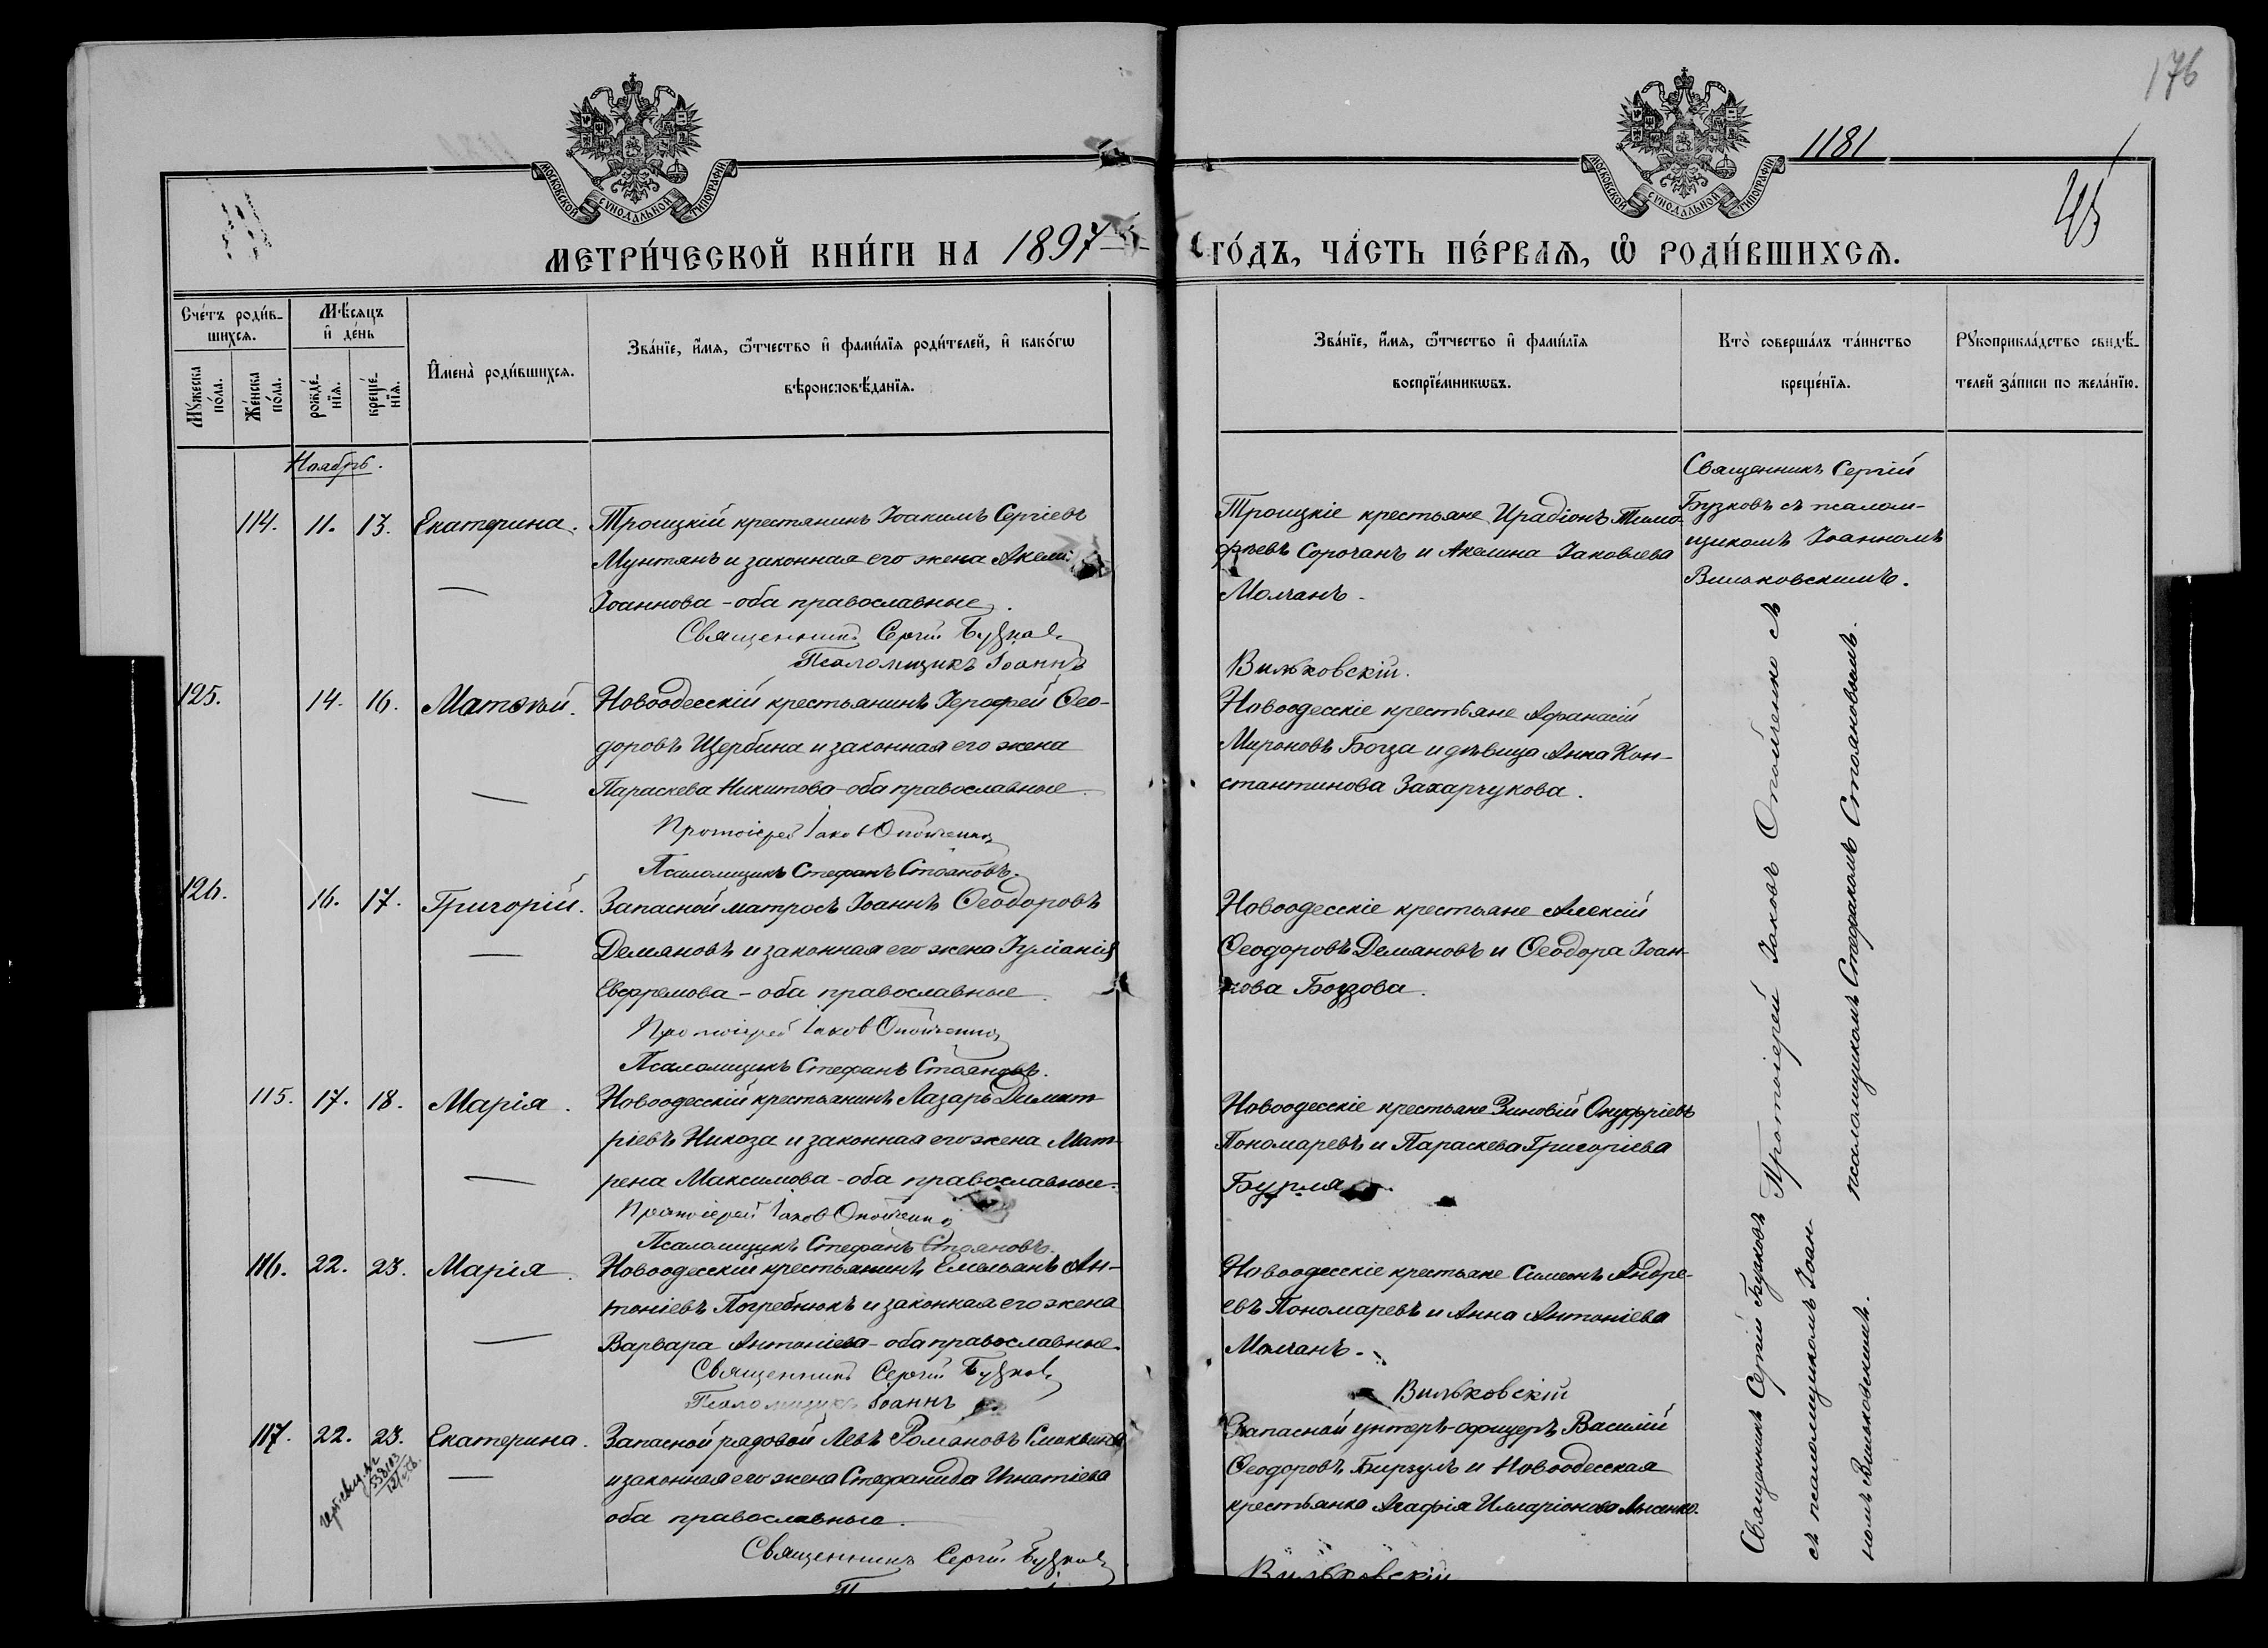 176
1181
МОСКОВСКОЙ СѴНОДАЛЬНОЙ ТИПОГРАФІИ
МОСКОВСКОЙ СѴНОДАЛЬНОЙ ТИПОГРАФІИ
МЕТРИ́ЧЕСКОЙ КНИ́ГИ НА 1897 ГО́ДЪ, ЧА́СТЬ ПЕ́РВАЯ, Ѡ҆ РОДИ́ВШИХСЯ.
Сче́тъ роди́в-
шихся.
Мꙋ́жеска по́ла.
Же́нска по́ла.
Мѣ́сяцъ
и҆ де́нь
рожде́-
нїя.
креще́-
нїя.
И҆мена̀ роди́вшихся.
Зва́нїе, и҆́мя, ѻ҆́тчество и҆ фами́лїя роди́телей, и҆ како́гѡ
вѣроисповѣ́данїя.
Зва́нїе, и҆́мя, ѻ҆́тчество и҆ фами́лїя
воспрїе́мникѡвъ.
Кто̀ соверша́лъ та́инство
креще́нїя.
Рꙋкоприкла́дство свидѣ́-
телей за́писи по жела́нїю.
Ноябрь.
114. 11. 13. Екатерина.
Троицкій крестянинъ Іоакимъ Сергіевъ
Мунтянъ и законная его жена
Іоаннова - оба православные.
Священникъ Сергій Бузковъ
Псаломщикъ Іоаннъ
Вильковскій.
Троицкіе крестьяне Ирадіонъ Тимо-
фѣевъ Сорочанъ и Акелина Іаковлева
Молчанъ.
Священникъ Сергій
Бузковъ съ псалом-
щикомъ Іоанномъ
Вильковскимъ.
125. 14. 16. Матѳѣй.
Новоодесскій крестьянинъ Іерофей Ѳео-
доровъ Щербина и законная его жена
Параскева Никитова - оба православные.
Протоіерей Іаковъ Опойченко
Псаломщикъ Стефанъ Стояновъ.
Новоодесскіе крестьяне Афанасій
Мироновъ Богза и дѣвица Анна Кон-
стантинова Захарчукова.
126. 16. 17. Григорій.
Запасной матросъ Іоаннъ Ѳеодоровъ
Демяновъ и законная его жена Іуліанія
Евфремова - оба православные.
Протоіерей Іаковъ Опойченко
Псаломщикъ Стефанъ Стояновъ.
Новоодесскіе крестьяне Алексій
Ѳеодоровъ Демяновъ и Ѳеодора Іоан-
нова Богзова.
115. 17. 18. Марія.
Новоодесскій крестьянинъ Лазарь Димит-
ріевъ Никоза и законная его жена Мат-
рена Максимова - оба православные.
Протоіерей Іаковъ Опойченко
Псаломщикъ Стефанъ Стояновъ.
Новоодесскіе крестьяне Зиновій Онуфріевъ
Пономаревъ и Параскева Григоріева
Бурля
116. 22. 23. Марія.
Новоодесскій крестьянинъ Емельянъ Ан-
тоніевъ Погребнюкъ и законная его жена
Варвара Антоніева - оба православные.
Священникъ Сергій Бузковъ
Псаломщикъ Іоаннъ
Вильковскій
Новоодесскіе крестьяне Симеонъ Андре-
евъ Пономаревъ и Анна Антоніева
Молчанъ.
117. 22. 23. Екатерина.
Запасной рядовой Левъ Романовъ
и законная его жена Стефанида Игнатіева
оба православные.
Священникъ Сергій Бузковъ
Вильковскій
Запасной унтеръ-офицеръ Василій
Ѳеодоровъ Бирзулъ и Новоодесская
крестьянка Агафія Илларіонова Лысенко.
Протоіерей Іаковъ Опойченко съ
псаломщикомъ Стефаномъ Стояновымъ.
Священникъ Сергій Бузковъ
съ псаломщикомъ Іоан-
номъ Вильковскимъ.